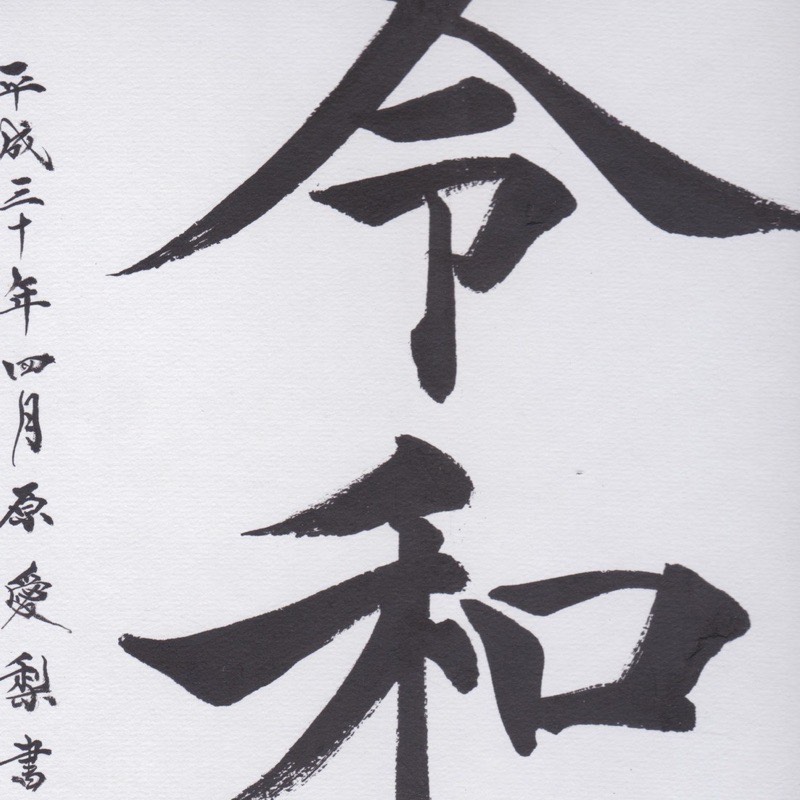 令和
平成三十年四月原愛梨書